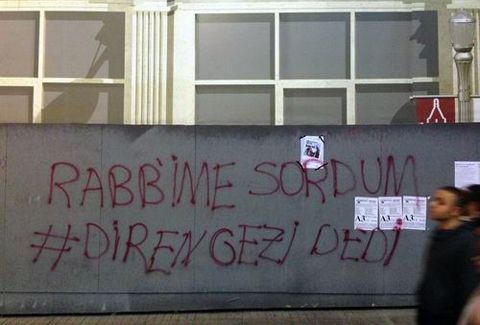 RABB'İME SORDUM
#DİREN GEZİ DEDİ
A3 A3 A3